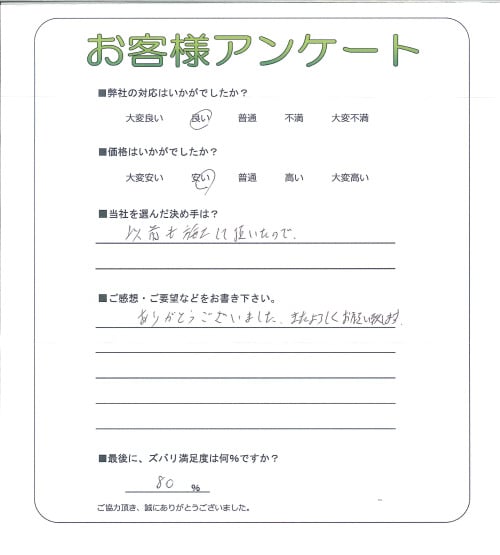 お客様アンケート
■弊社の対応はいかがでしたか？
大変良い 良い 普通 不満 大変不満
■価格はいかがでしたか？
大変安い 安い 普通 高い 大変高い
■当社を選んだ決め手は？
以前も施工して頂いたので、
■ご感想・ご要望などをお書き下さい。
ありがとうございました。またよろしくお願い致します。
■最後に、ズバリ満足度は何％ですか？
80 ％
ご協力頂き、誠にありがとうございました。